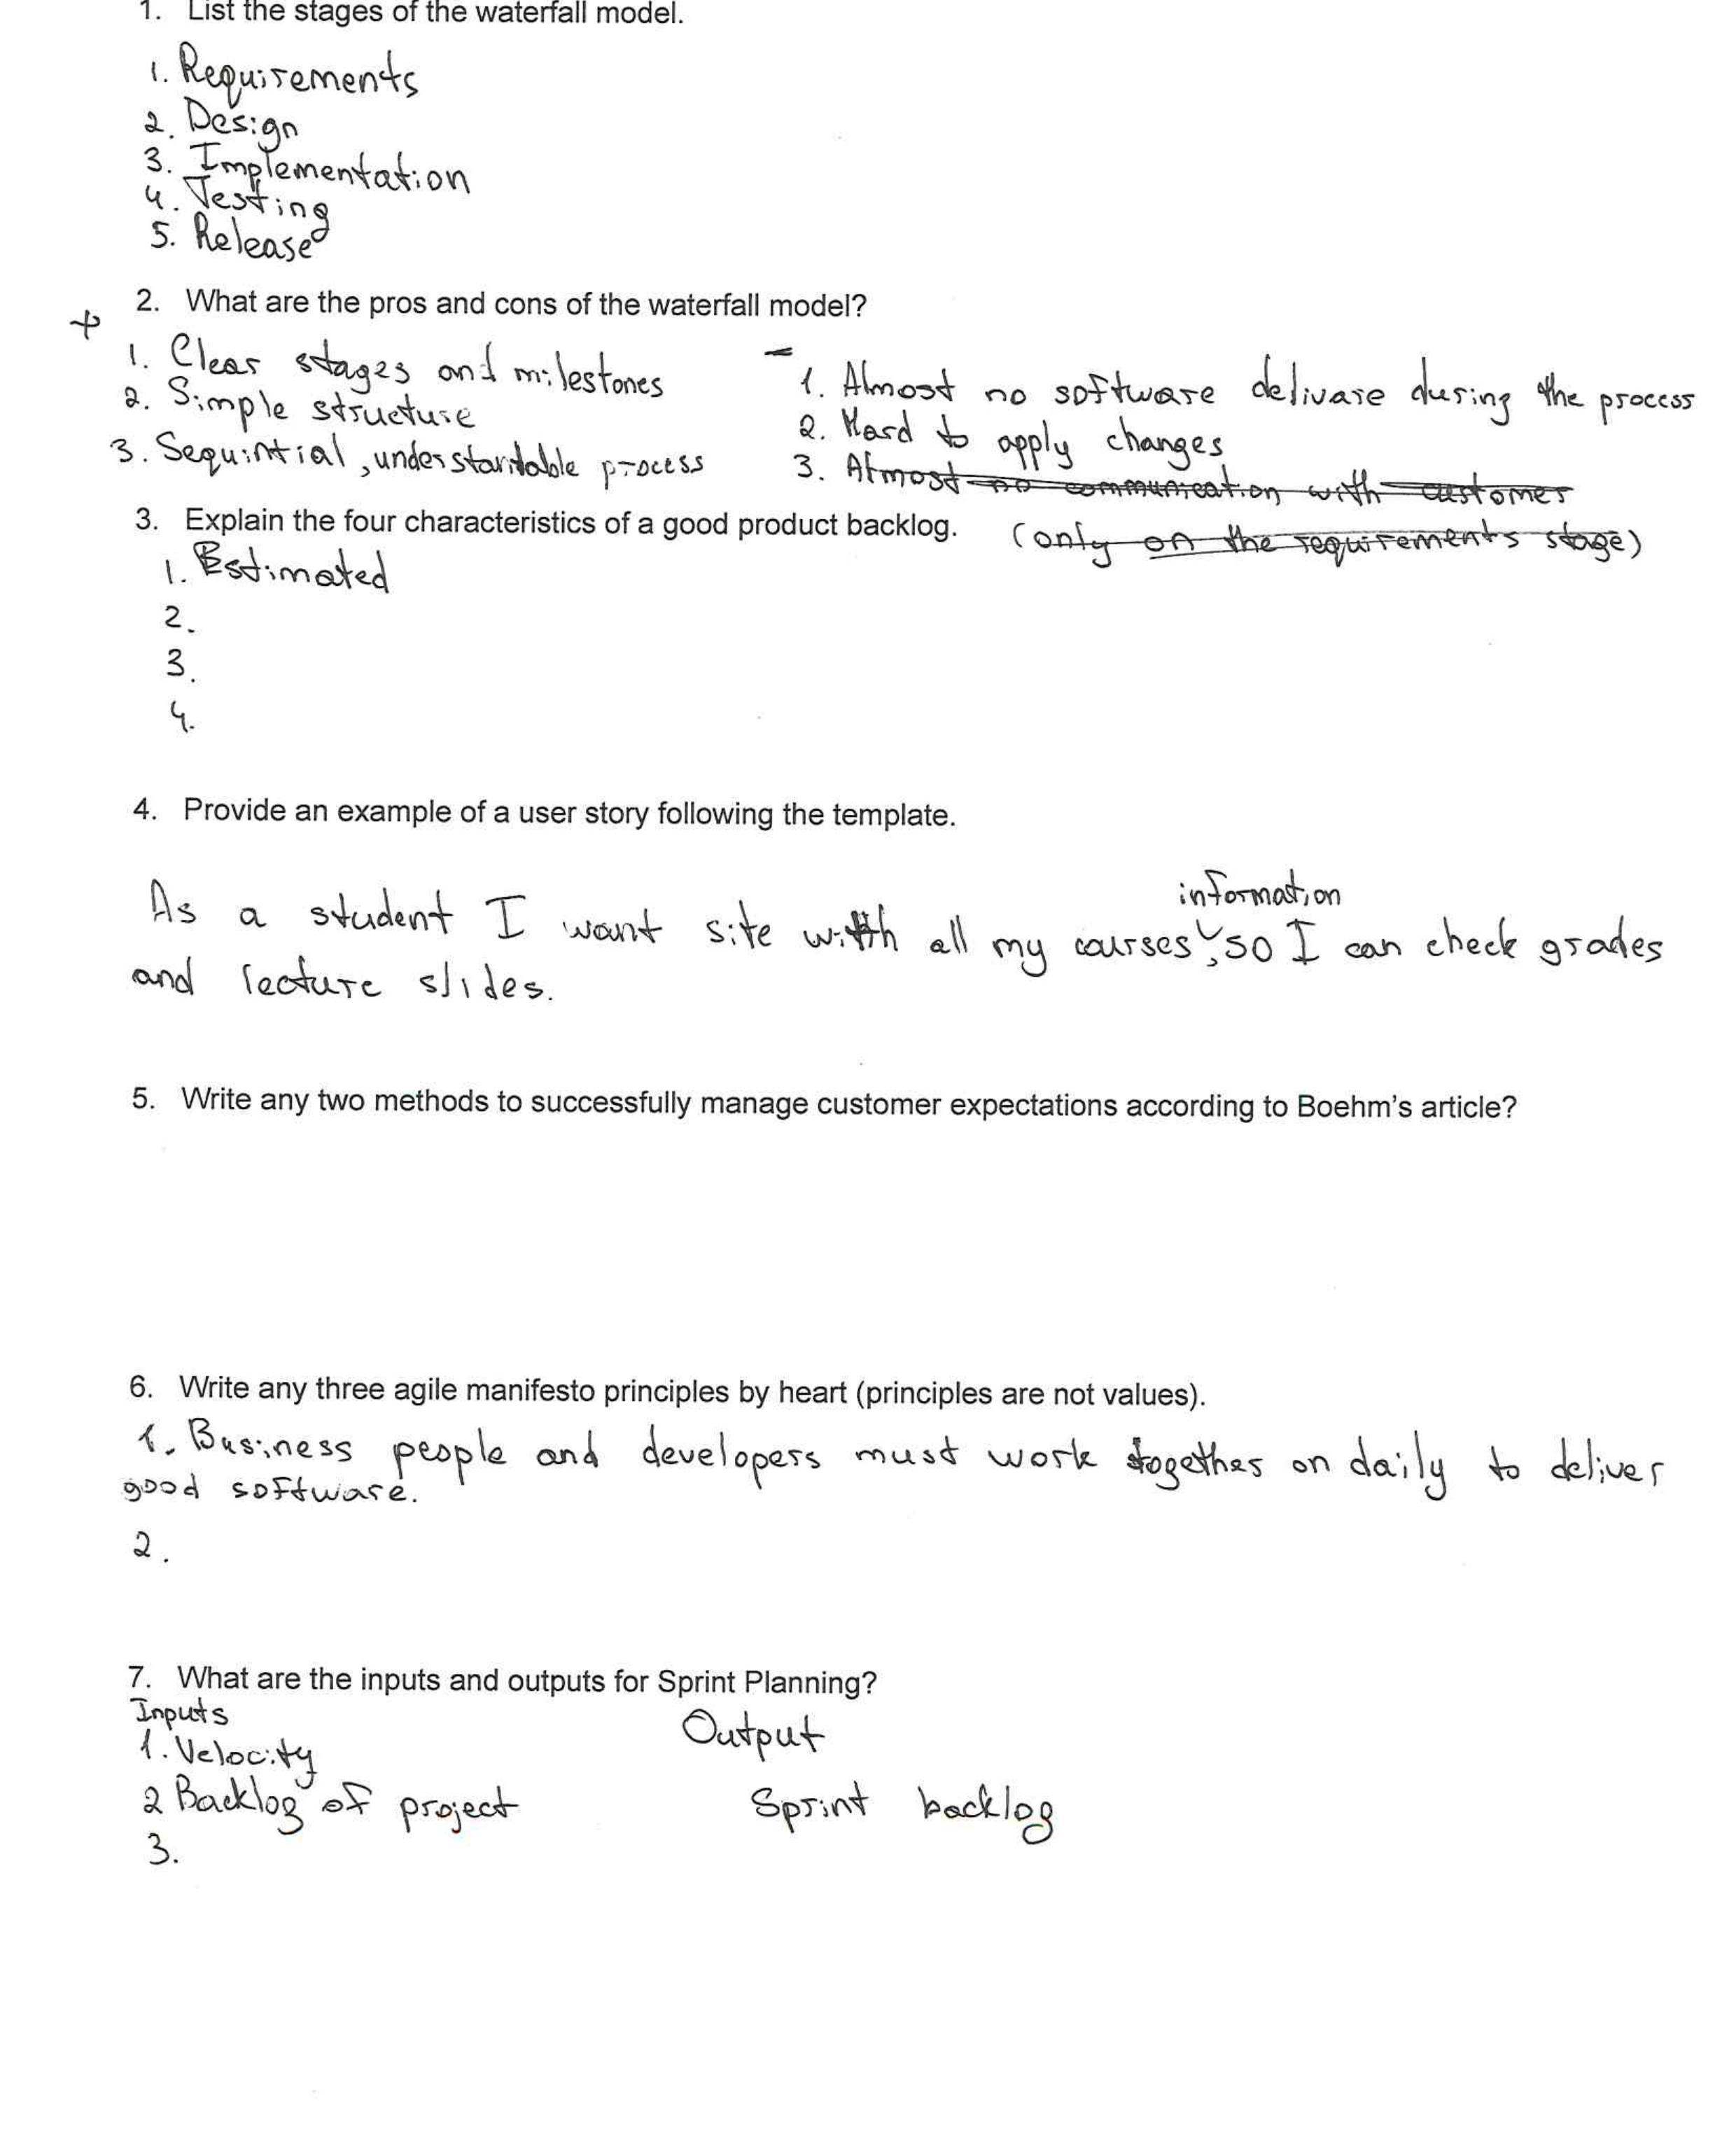 1. List the stages of the waterfall model.
1. Requirements
2. Design
3. Implementation
4. Testing
5. Release
2. What are the pros and cons of the waterfall model?
+
1. Clear stages and milestones
2. Simple structure
3. Sequintial, understandable process
-
1. Almost no software delivare during the process
2. Hard to apply changes
3. Almost no communication with customer
(only on the requirements stage)
3. Explain the four characteristics of a good product backlog.
1. Estimated
2.
3.
4.
4. Provide an example of a user story following the template.
information
As a student I want site with all my courses, so I can check grades
and lecture slides.
5. Write any two methods to successfully manage customer expectations according to Boehm's article?
6. Write any three agile manifesto principles by heart (principles are not values).
1. Business people and developers must work together on daily to deliver
good software.
2.
7. What are the inputs and outputs for Sprint Planning?
Inputs
1. Velocity
2 Backlog of project
3.
Output
Sprint backlog